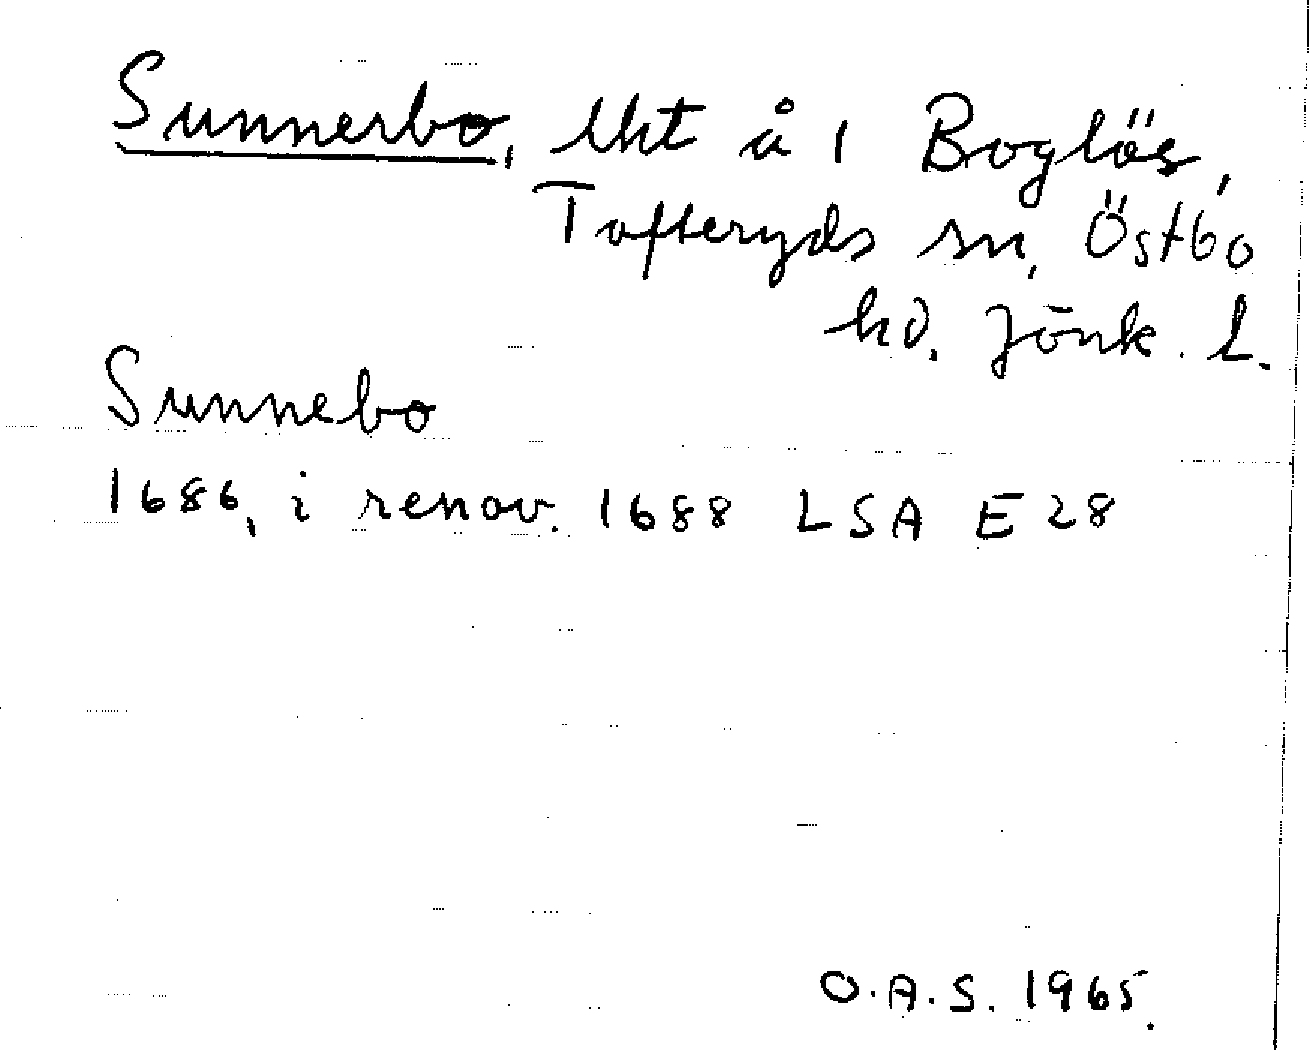 Sunnerbo, lht å 1 Boglös,
Tofteryds sn, Östbo
hd. Jönk. l.
Sunnebo
1686, i renov. 1688 LSA E 28
O.A.S. 1965.